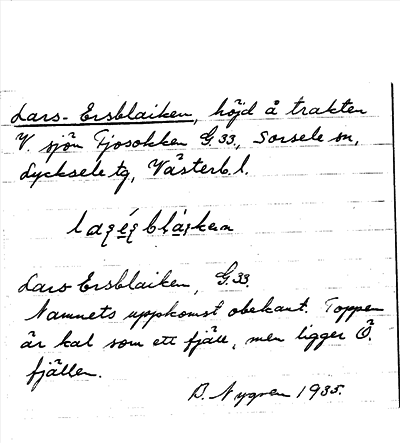 Lars-Ersblaiken, höjd å trakten
V. sjön Tjosokken G.33, Sorsele sn,
Lycksele tg, Västerb. l.
Lars Ersblaiken, G.33.
Namnets uppkomst obekant. Toppen
är kal som ett fjäll, men ligger Ö.
fjällen.
D. Nygren 1935.